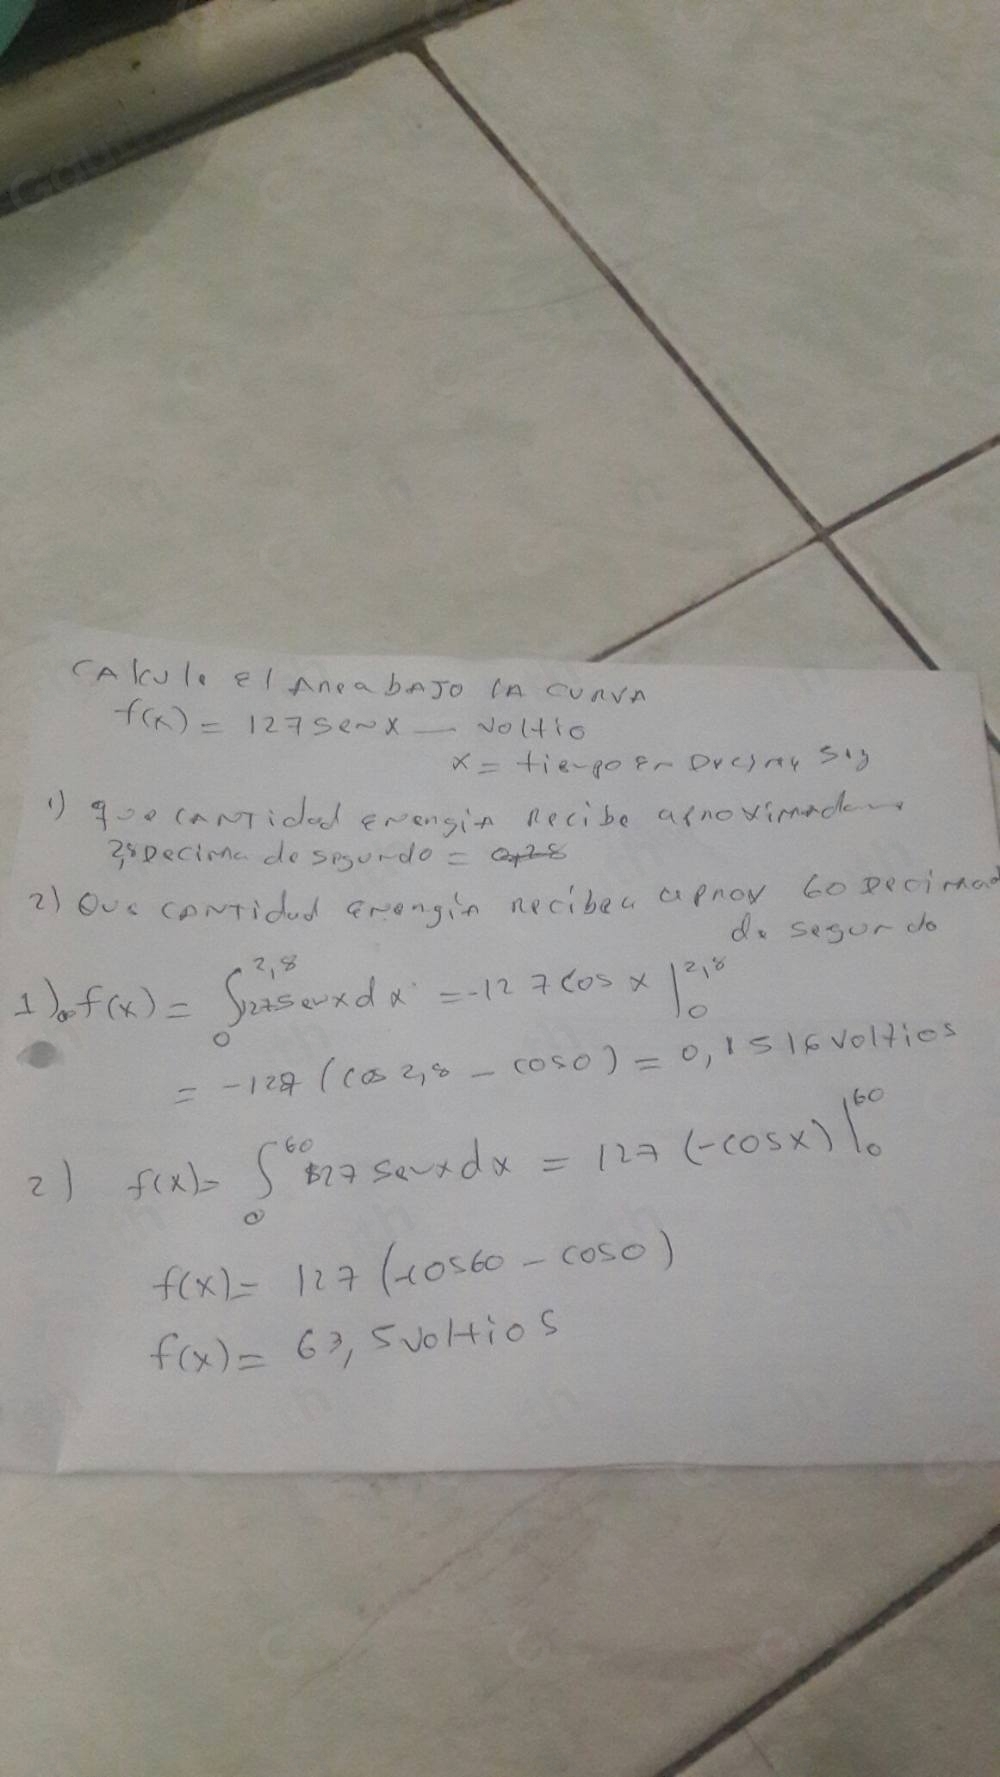 CALCULE El AREA bAJO LA CURVA
f(x) = 127 sen x — voltio
x = tiempo En Decimas Seg
1) que CANTidad ENERgiA Recibe aproximadam
2,8 Decima de segundo = 0,28
2) Que CANTidad Energia recibe a aprox 60 Decimad
de segundo
1) f(x) = ∫₀^2,8 127 sen x dx = -127 cos x |₀^2,8
= -127 (cos 2,8 - cos 0) = 0,1516 voltios
2) f(x) = ∫₀^60 127 sen x dx = 127 (-cos x) |₀^60
f(x) = 127 (-cos60 - cos0)
f(x) = 63,5 voltios